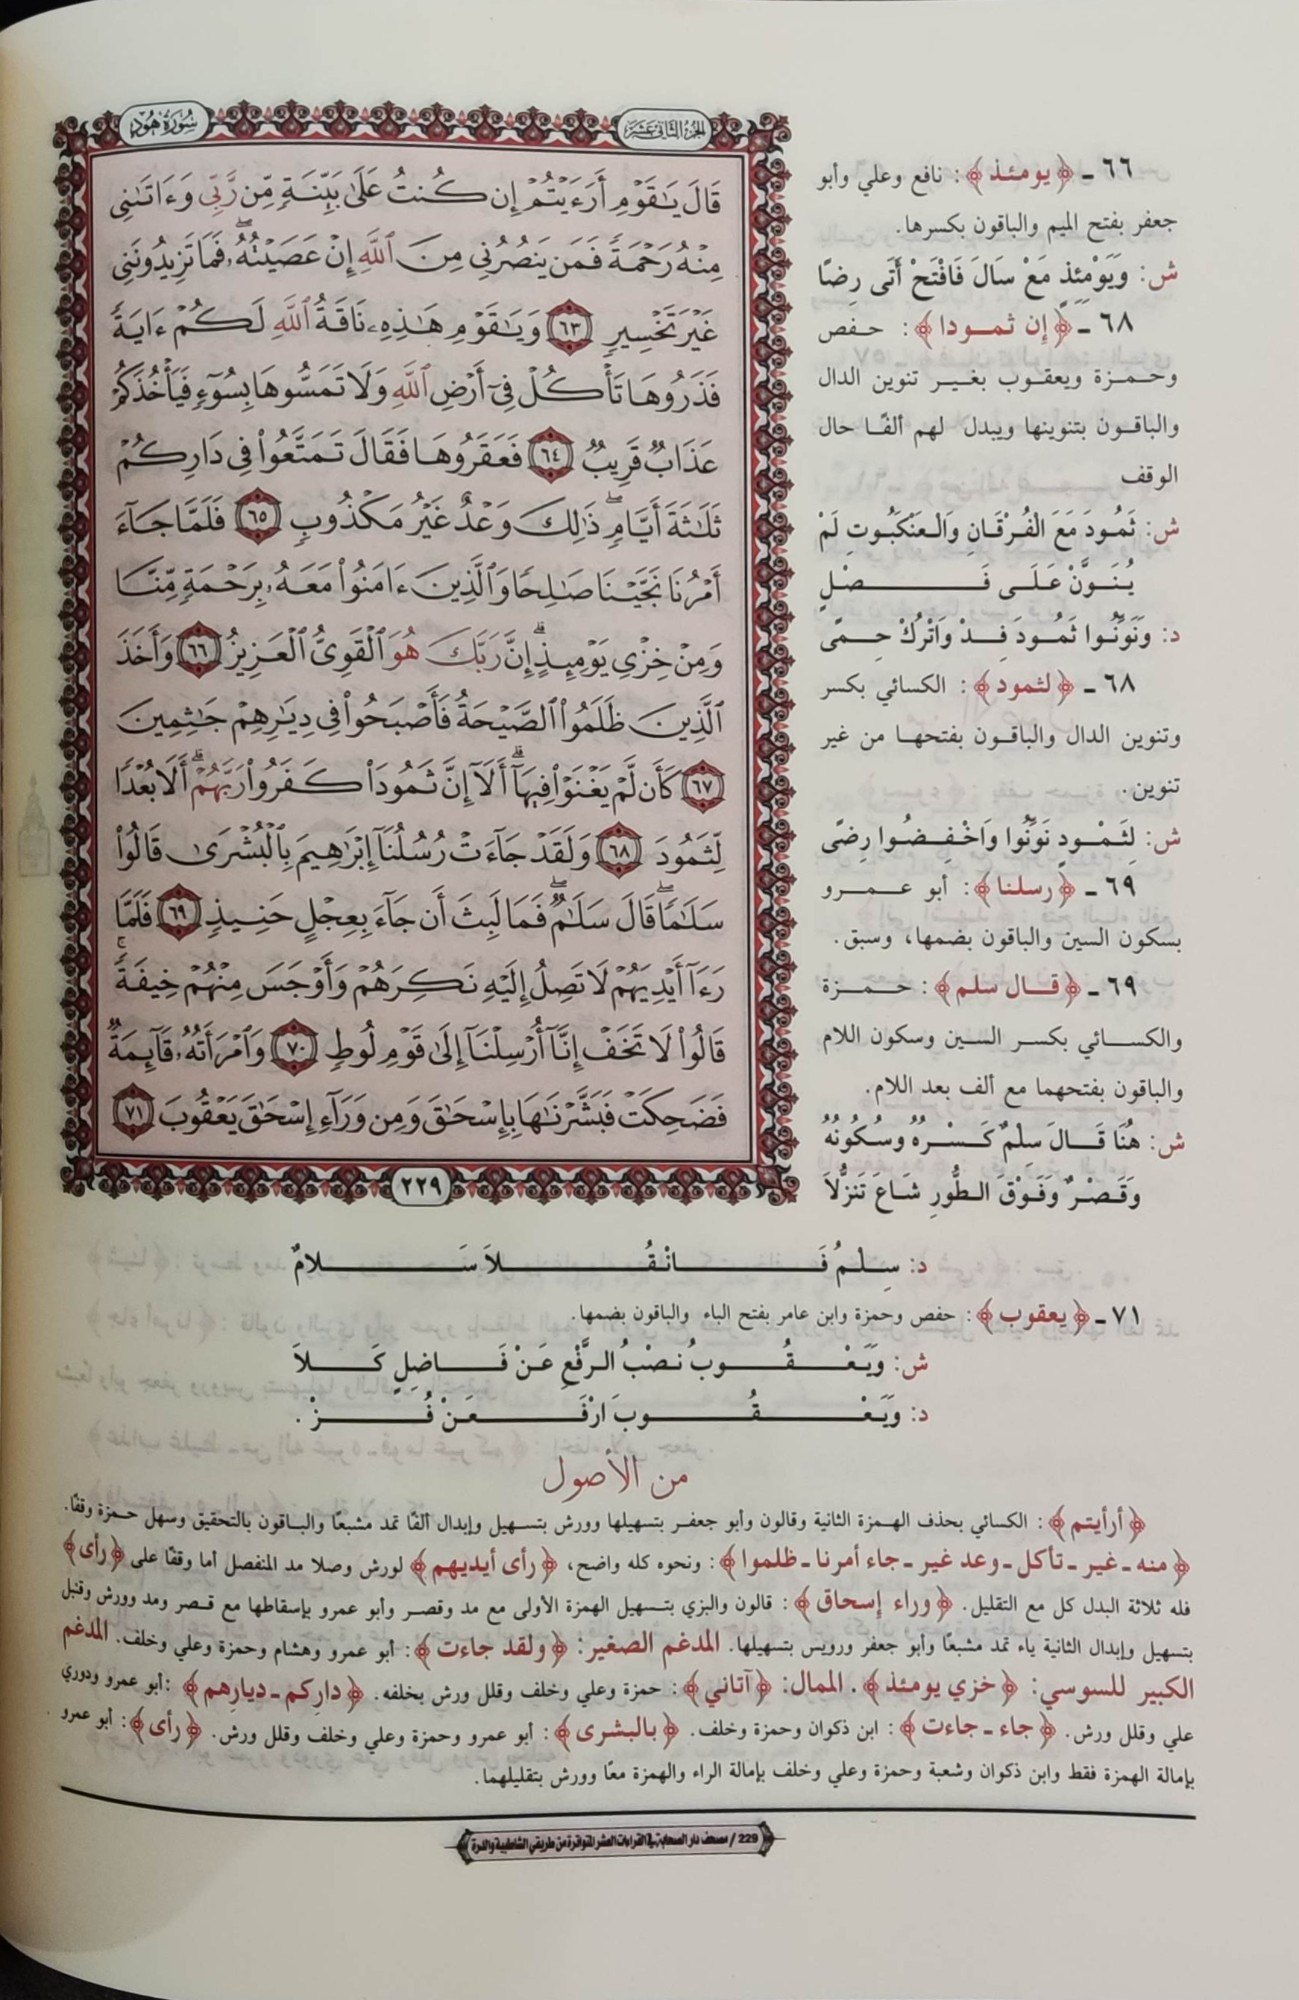 سورة هود
الجزء الثاني عشر
قَالَ يَٰقَوْمِ أَرَءَيْتُمْ إِن كُنتُ عَلَىٰ بَيِّنَةٍ مِّن رَّبِّي وَءَاتَىٰنِي
مِنْهُ رَحْمَةً فَمَن يَنصُرُنِي مِنَ ٱللَّهِ إِنْ عَصَيْتُهُۥۖ فَمَا تَزِيدُونَنِي
غَيْرَ تَخْسِيرٍ ٦٣ وَيَٰقَوْمِ هَٰذِهِۦ نَاقَةُ ٱللَّهِ لَكُمْ ءَايَةً
فَذَرُوهَا تَأْكُلْ فِيٓ أَرْضِ ٱللَّهِ وَلَا تَمَسُّوهَا بِسُوٓءٍ فَيَأْخُذَكُمْ
عَذَابٌ قَرِيبٌ ٦٤ فَعَقَرُوهَا فَقَالَ تَمَتَّعُوا۟ فِي دَارِكُمْ
ثَلَٰثَةَ أَيَّامٍۖ ذَٰلِكَ وَعْدٌ غَيْرُ مَكْذُوبٍ ٦٥ فَلَمَّا جَآءَ
أَمْرُنَا نَجَّيْنَا صَٰلِحًا وَٱلَّذِينَ ءَامَنُوا۟ مَعَهُۥ بِرَحْمَةٍ مِّنَّا
وَمِنْ خِزْيِ يَوْمِئِذٍۗ إِنَّ رَبَّكَ هُوَ ٱلْقَوِيُّ ٱلْعَزِيزُ ٦٦ وَأَخَذَ
ٱلَّذِينَ ظَلَمُوا۟ ٱلصَّيْحَةُ فَأَصْبَحُوا۟ فِي دِيَٰرِهِمْ جَٰثِمِينَ
٦٧ كَأَن لَّمْ يَغْنَوْا۟ فِيهَآۗ أَلَآ إِنَّ ثَمُودَا۟ كَفَرُوا۟ رَبَّهُمْۗ أَلَا بُعْدًا
لِّثَمُودَ ٦٨ وَلَقَدْ جَآءَتْ رُسُلُنَآ إِبْرَٰهِيمَ بِٱلْبُشْرَىٰ قَالُوا۟
سَلَٰمًاۖ قَالَ سَلَٰمٌۖ فَمَا لَبِثَ أَن جَآءَ بِعِجْلٍ حَنِيذٍ ٦٩ فَلَمَّا
رَءَآ أَيْدِيَهُمْ لَا تَصِلُ إِلَيْهِ نَكِرَهُمْ وَأَوْجَسَ مِنْهُمْ خِيفَةًۚ
قَالُوا۟ لَا تَخَفْ إِنَّآ أُرْسِلْنَآ إِلَىٰ قَوْمِ لُوطٍ ٧٠ وَٱمْرَأَتُهُۥ قَآئِمَةٌ
فَضَحِكَتْ فَبَشَّرْنَٰهَا بِإِسْحَٰقَ وَمِن وَرَآءِ إِسْحَٰقَ يَعْقُوبَ ٧١
٢٢٩
٦٦ ـ ﴿يومئذ﴾: نافع وعلي وأبو
جعفر بفتح الميم والباقون بكسرها.
ش: وَيَوْمِئِذٍ مَعْ سَالَ فَافْتَحْ أَتَى رِضًا
٦٨ ـ ﴿إن ثمودا﴾: حفص
وحمزة ويعقوب بغير تنوين الدال
والباقون بتنوينها ويبدل لهم ألفًا حال
الوقف
ش: ثَمُودَ مَعَ الْفُرْقَانِ وَالْعَنْكَبُوتِ لَمْ
يُنَوَّنْ عَلَى فَصْلٍ
د: وَنَوِّنُوا ثَمُودَ فِدْ وَاتْرُكْ حِمًى
٦٨ ـ ﴿لثمود﴾: الكسائي بكسر
وتنوين الدال والباقون بفتحها من غير
تنوين.
ش: لِثَمُودٍ نَوِّنُوا وَاخْفِضُوا رِضًى
٦٩ ـ ﴿رسلنا﴾: أبو عمرو
بسكون السين والباقون بضمها، وسبق.
٦٩ ـ ﴿قال سلم﴾: حمزة
والكسائي بكسر السين وسكون اللام
والباقون بفتحهما مع ألف بعد اللام.
ش: هُنَا قَالَ سِلْمٌ كَسْرُهُ وَسُكُونُهُ
وَقَصْرٌ وَفَوْقَ الطُّورِ شَاعَ تَنَزُّلَا
د: سِلْمُ فَانْقُلَا سَلَامٌ
٧١ ـ ﴿يعقوب﴾: حفص وحمزة وابن عامر بفتح الباء والباقون بضمها.
ش: وَيَعْقُوبُ نصْبُ الرَّفْعِ عَنْ فَاضِلٍ كَلَا
د: وَيَعْقُوبَ ارْفَعَنْ فُزْ.
من الأصول
﴿أرأيتم﴾: الكسائي بحذف الهمزة الثانية وقالون وأبو جعفر بتسهيلها وورش بتسهيل وإبدال ألفًا تمد مشبعًا والباقون بالتحقيق وسهل حمزة وقفًا.
﴿منه ـ غير ـ تأكل ـ وعد غير ـ جاء أمرنا ـ ظلموا﴾: ونحوه كله واضح، ﴿رأى أيديهم﴾ لورش وصلا مد المنفصل أما وقفًا على ﴿رأى﴾
فله ثلاثة البدل كل مع التقليل. ﴿وراء إسحاق﴾: قالون والبزي بتسهيل الهمزة الأولى مع مد وقصر وأبو عمرو بإسقاطها مع قصر ومد وورش وقنبل
بتسهيل وإبدال الثانية ياء تمد مشبعًا وأبو جعفر ورويس بتسهيلها. المدغم الصغير: ﴿ولقد جاءت﴾: أبو عمرو وهشام وحمزة وعلي وخلف. المدغم
الكبير للسوسي: ﴿خزي يومئذ﴾. الممال: ﴿آتاني﴾: حمزة وعلي وخلف وقلل ورش بخلفه. ﴿داركم ـ ديارهم﴾: أبو عمرو ودوري
علي وقلل ورش. ﴿جاء ـ جاءت﴾: ابن ذكوان وحمزة وخلف. ﴿بالبشرى﴾: أبو عمرو وحمزة وعلي وخلف وقلل ورش. ﴿رأى﴾: أبو عمرو
بإمالة الهمزة فقط وابن ذكوان وشعبة وحمزة وعلي وخلف بإمالة الراء والهمزة معًا وورش بتقليلهما.
229 / مصحف دار الصحابة في القراءات العشر المتواترة من طريقي الشاطبية والدرة